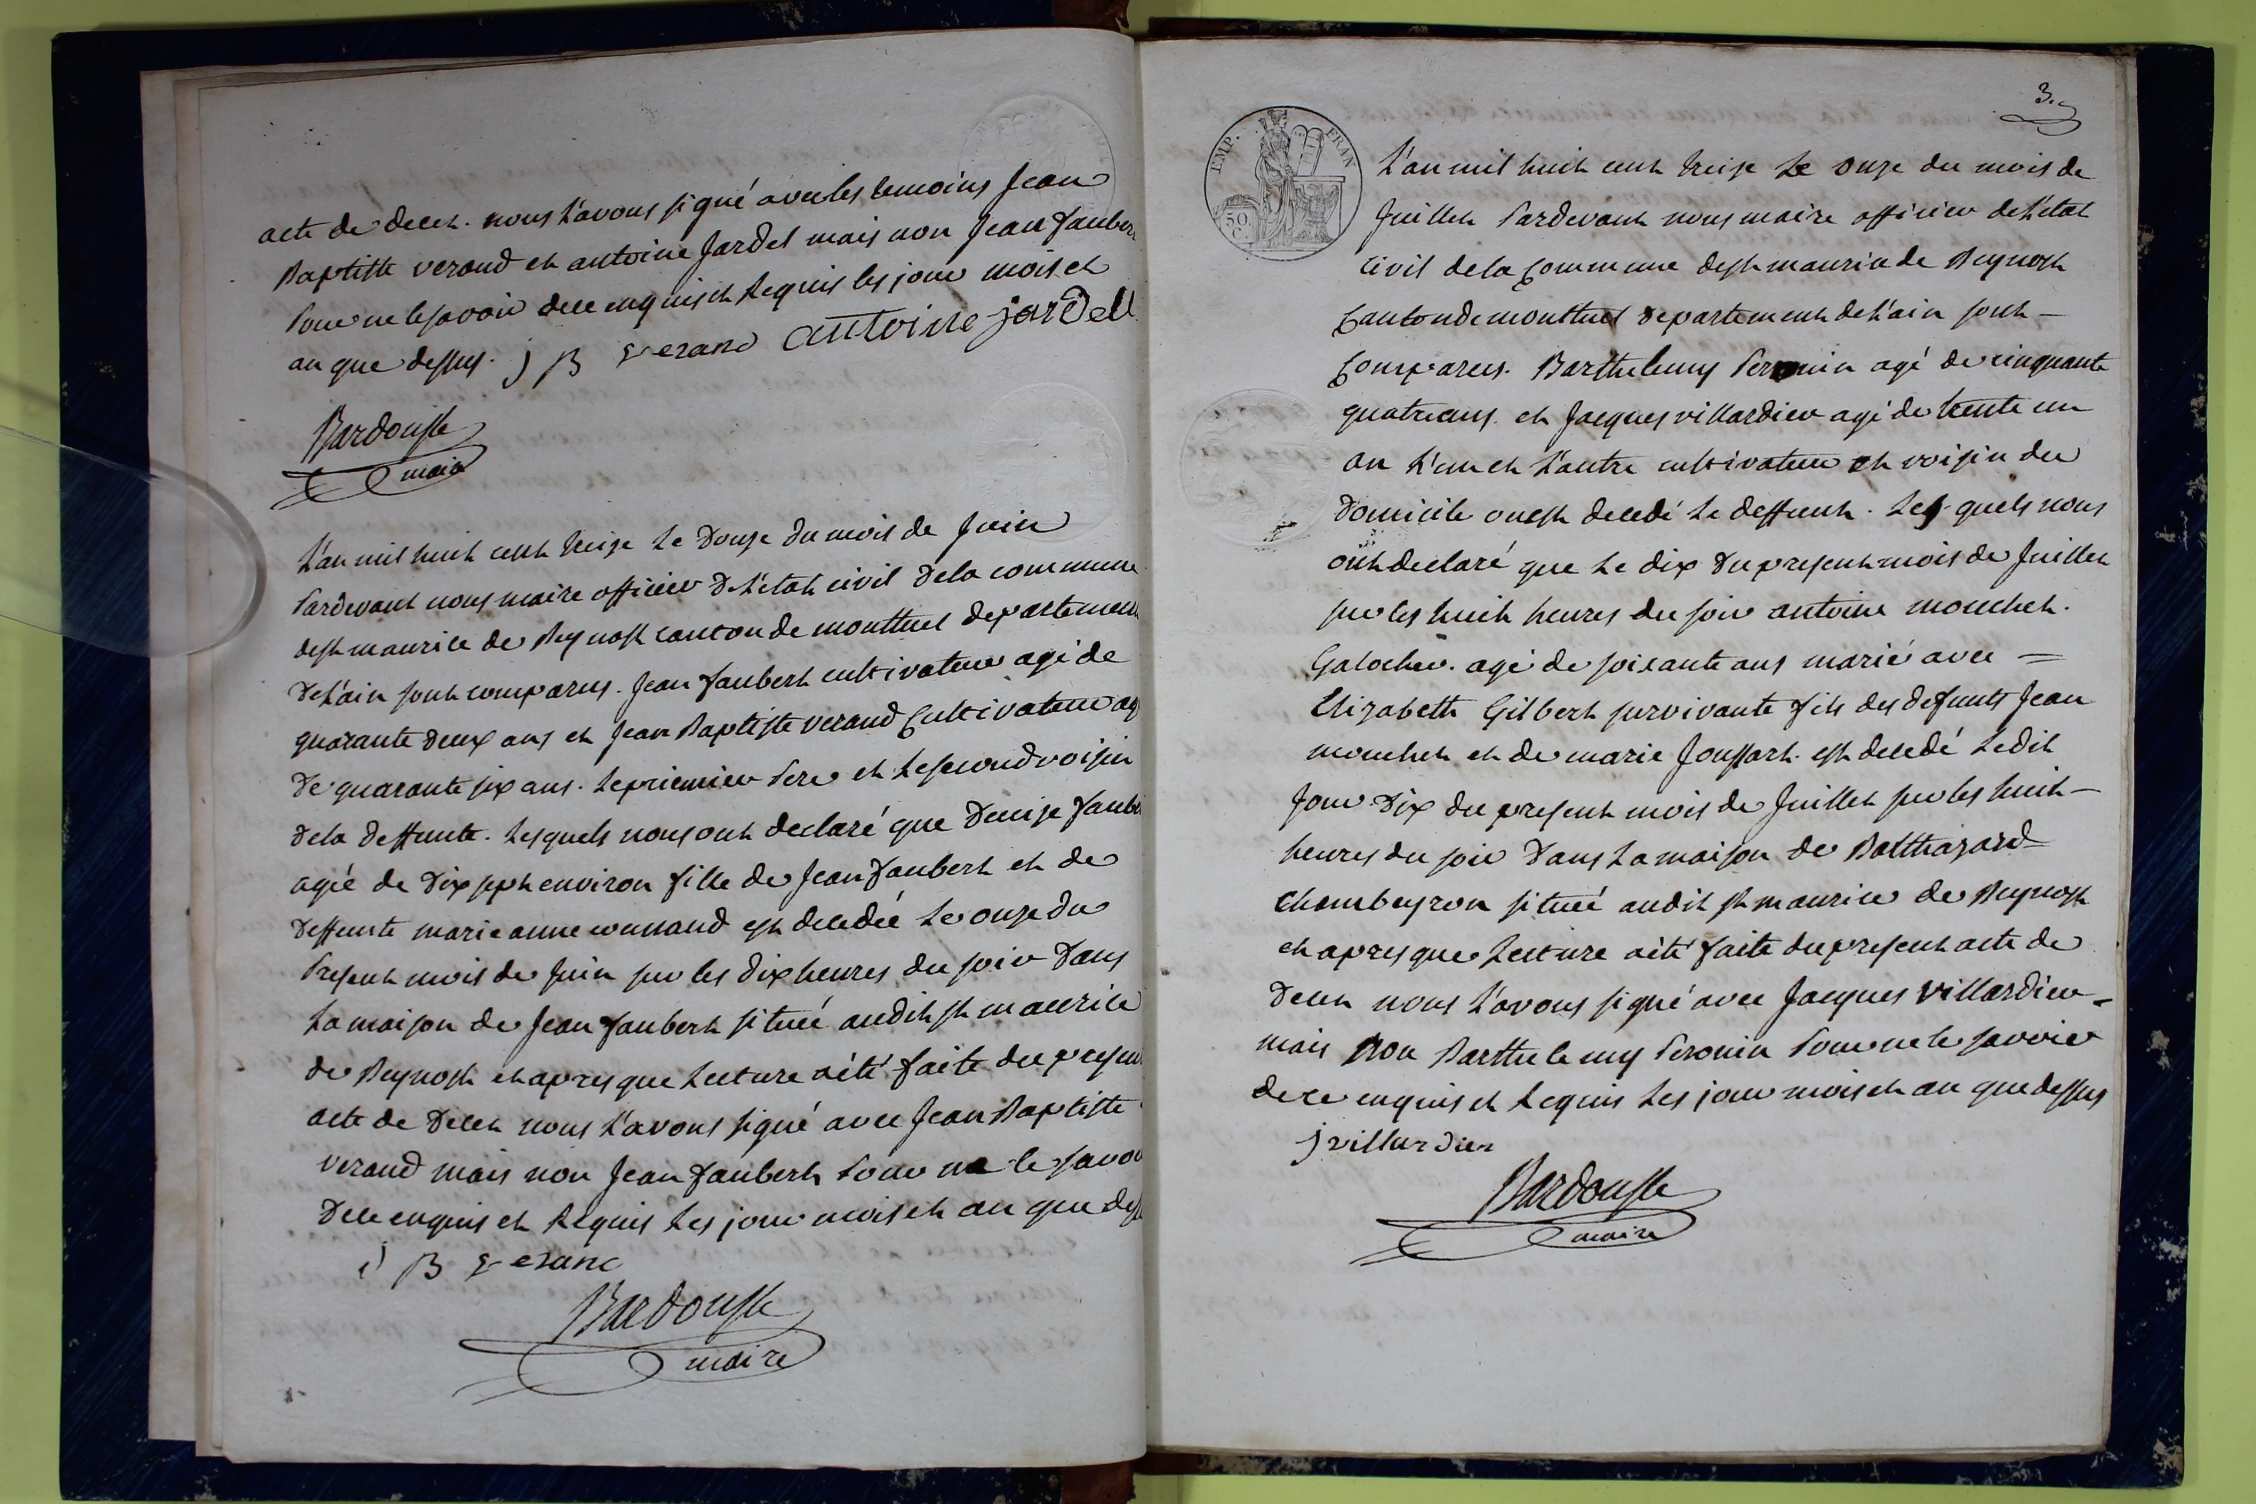 acte de decet. nous l'avons signé avec les temoins Jean
Baptiste verand et antoine Jardel mais non Jean Jauber
pour ne le savoir de ce enquis et Requis les jour mois et
an que dessus. J B verand antoine jardell
Bardoust
maire
L'an mil huit cent treize le douze du mois de Juin
Pardevant nous maire officier de l'état civil de la commune
de st maurice de Beynost canton de montluel departement
de l'ain sont comparus. Jean Jaubert cultivateur agé de
quarante deux ans et Jean Baptiste verand Cultivateur ag
de quarante six ans. le premier Pere et le second voisin
de la deffunte. Lesquels nous ont declaré que Denise Jaube
agée de dix sept environ fille de Jean Jaubert et de
deffunte marie anne est decedée le onze du
Present mois de Juin sur les dix heures du soir dans
la maison de Jean Jaubert située audit st maurice
de Beynost et apres que lecture a été faite du presen
acte de decet nous l'avons signé avec Jean Baptiste
verand mais non Jean Jaubert pour ne le savoi
de ce enquis et Requis les jour mois et an que dess
J B verand
Bardoust
maire
3.
EMP. FRAN
50 C.
L'an mil huit cent treize le onze du mois de
Juillet Pardevant nous maire officier de l'état
civil de la Commune de st maurice de Beynost
Canton de montluel departement de l'ain sont
Comparus. Barthelemy Peronin agé de cinquante
quatre ans et Jacques villardier agé de trente un
an l'un et l'autre cultivateur et voisin du
domicile ou est decedé le deffunt. Lesquels nous
ont declaré que le dix du present mois de Juillet
sur les huit heures du soir antoine mouchet.
Galocher. agé de soixante ans marié avec =
Elizabeth Gilbert survivante fils des defunts Jean
mouchet et de marie Joussart. est decedé ledit
Jour dix du present mois de Juillet sur les huit
heures du soir dans la maison de Balthazard
Chambeyron située audit st maurice de Beynost
et apres que lecture a été faite du present acte de
decet nous l'avons signé avec Jacques villardier
mais non Barthelemy Peronin pour ne le savoir
de ce enquis et Requis les jour mois et an que dessus
j villardier
Bardoust
maire